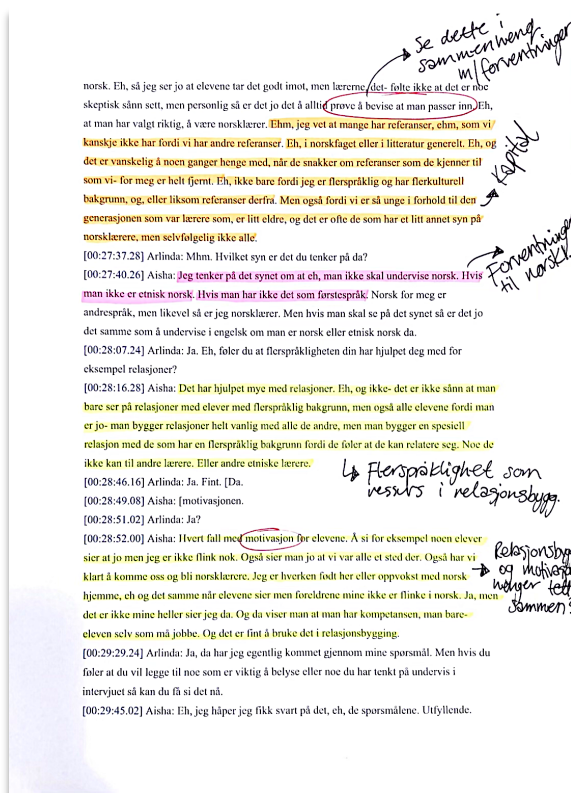 Se dette i
sammenheng
m/forventninger
norsk. Eh, så jeg ser jo at elevene tar det godt imot, men lærerne, det- følte ikke at det er noe
skeptisk sånn sett, men personlig så er det jo det å alltid prøve å bevise at man passer inn. Eh,
at man har valgt riktig, å være norsklærer. Ehm, jeg vet at mange har referanser, ehm, som vi
kanskje ikke har fordi vi har andre referanser. Eh, i norskfaget eller i litteratur generelt. Eh, og
det er vanskelig å noen ganger henge med, når de snakker om referanser som de kjenner til
som vi- for meg er helt fjernt. Eh, ikke bare fordi jeg er flerspråklig og har flerkulturell
bakgrunn, og, eller liksom referanser derfra. Men også fordi vi er så unge i forhold til den
generasjonen som var lærere som er, litt eldre, og det er ofte de som har et litt annet syn på
norsklærere, men selvfølgelig ikke alle.
Kapital
[00:27:37.28] Arlinda: Mhm. Hvilket syn er det du tenker på da?
[00:27:40.26] Aisha: Jeg tenker på det synet om at eh, man ikke skal undervise norsk. Hvis
man ikke er etnisk norsk. Hvis man har ikke det som førstespråk. Norsk for meg er
andrespråk, men likevel så er jeg norsklærer. Men hvis man skal se på det synet så er det jo
det samme som å undervise i engelsk om man er norsk eller etnisk norsk da.
Forventninger
til norskl.
[00:28:07.24] Arlinda: Ja. Eh, føler du at flerspråkligheten din har hjulpet deg med for
eksempel relasjoner?
[00:28:16.28] Aisha: Det har hjulpet mye med relasjoner. Eh, og ikke- det er ikke sånn at man
bare ser på relasjoner med elever med flerspråklig bakgrunn, men også alle elevene fordi man
er jo- man bygger relasjoner helt vanlig med alle de andre, men man bygger en spesiell
relasjon med de som har en flerspråklig bakgrunn fordi de føler at de kan relatere seg. Noe de
ikke kan til andre lærere. Eller andre etniske lærere.
Flerspråklighet som
ressurs i relasjonsbygg.
[00:28:46.16] Arlinda: Ja. Fint. [Da.
[00:28:49.08] Aisha: [motivasjonen.
[00:28:51.02] Arlinda: Ja?
[00:28:52.00] Aisha: Hvert fall med motivasjon for elevene. Å si for eksempel noen elever
sier at jo men jeg er ikke flink nok. Også sier man jo at vi var alle et sted der. Også har vi
klart å komme oss og bli norsklærere. Jeg er hverken født her eller oppvokst med norsk
hjemme, eh og det samme når elevene sier men foreldrene mine ikke er flinke i norsk. Ja, men
det er ikke mine heller sier jeg da. Og da viser man at man har kompetansen, man bare-
eleven selv som må jobbe. Og det er fint å bruke det i relasjonsbygging.
Relasjonsby
og motivasj
henger tett
sammen
[00:29:29.24] Arlinda: Ja, da har jeg egentlig kommet gjennom mine spørsmål. Men hvis du
føler at du vil legge til noe som er viktig å belyse eller noe du har tenkt på undervis i
intervjuet så kan du få si det nå.
[00:29:45.02] Aisha: Eh, jeg håper jeg fikk svart på det, eh, de spørsmålene. Utfyllende.